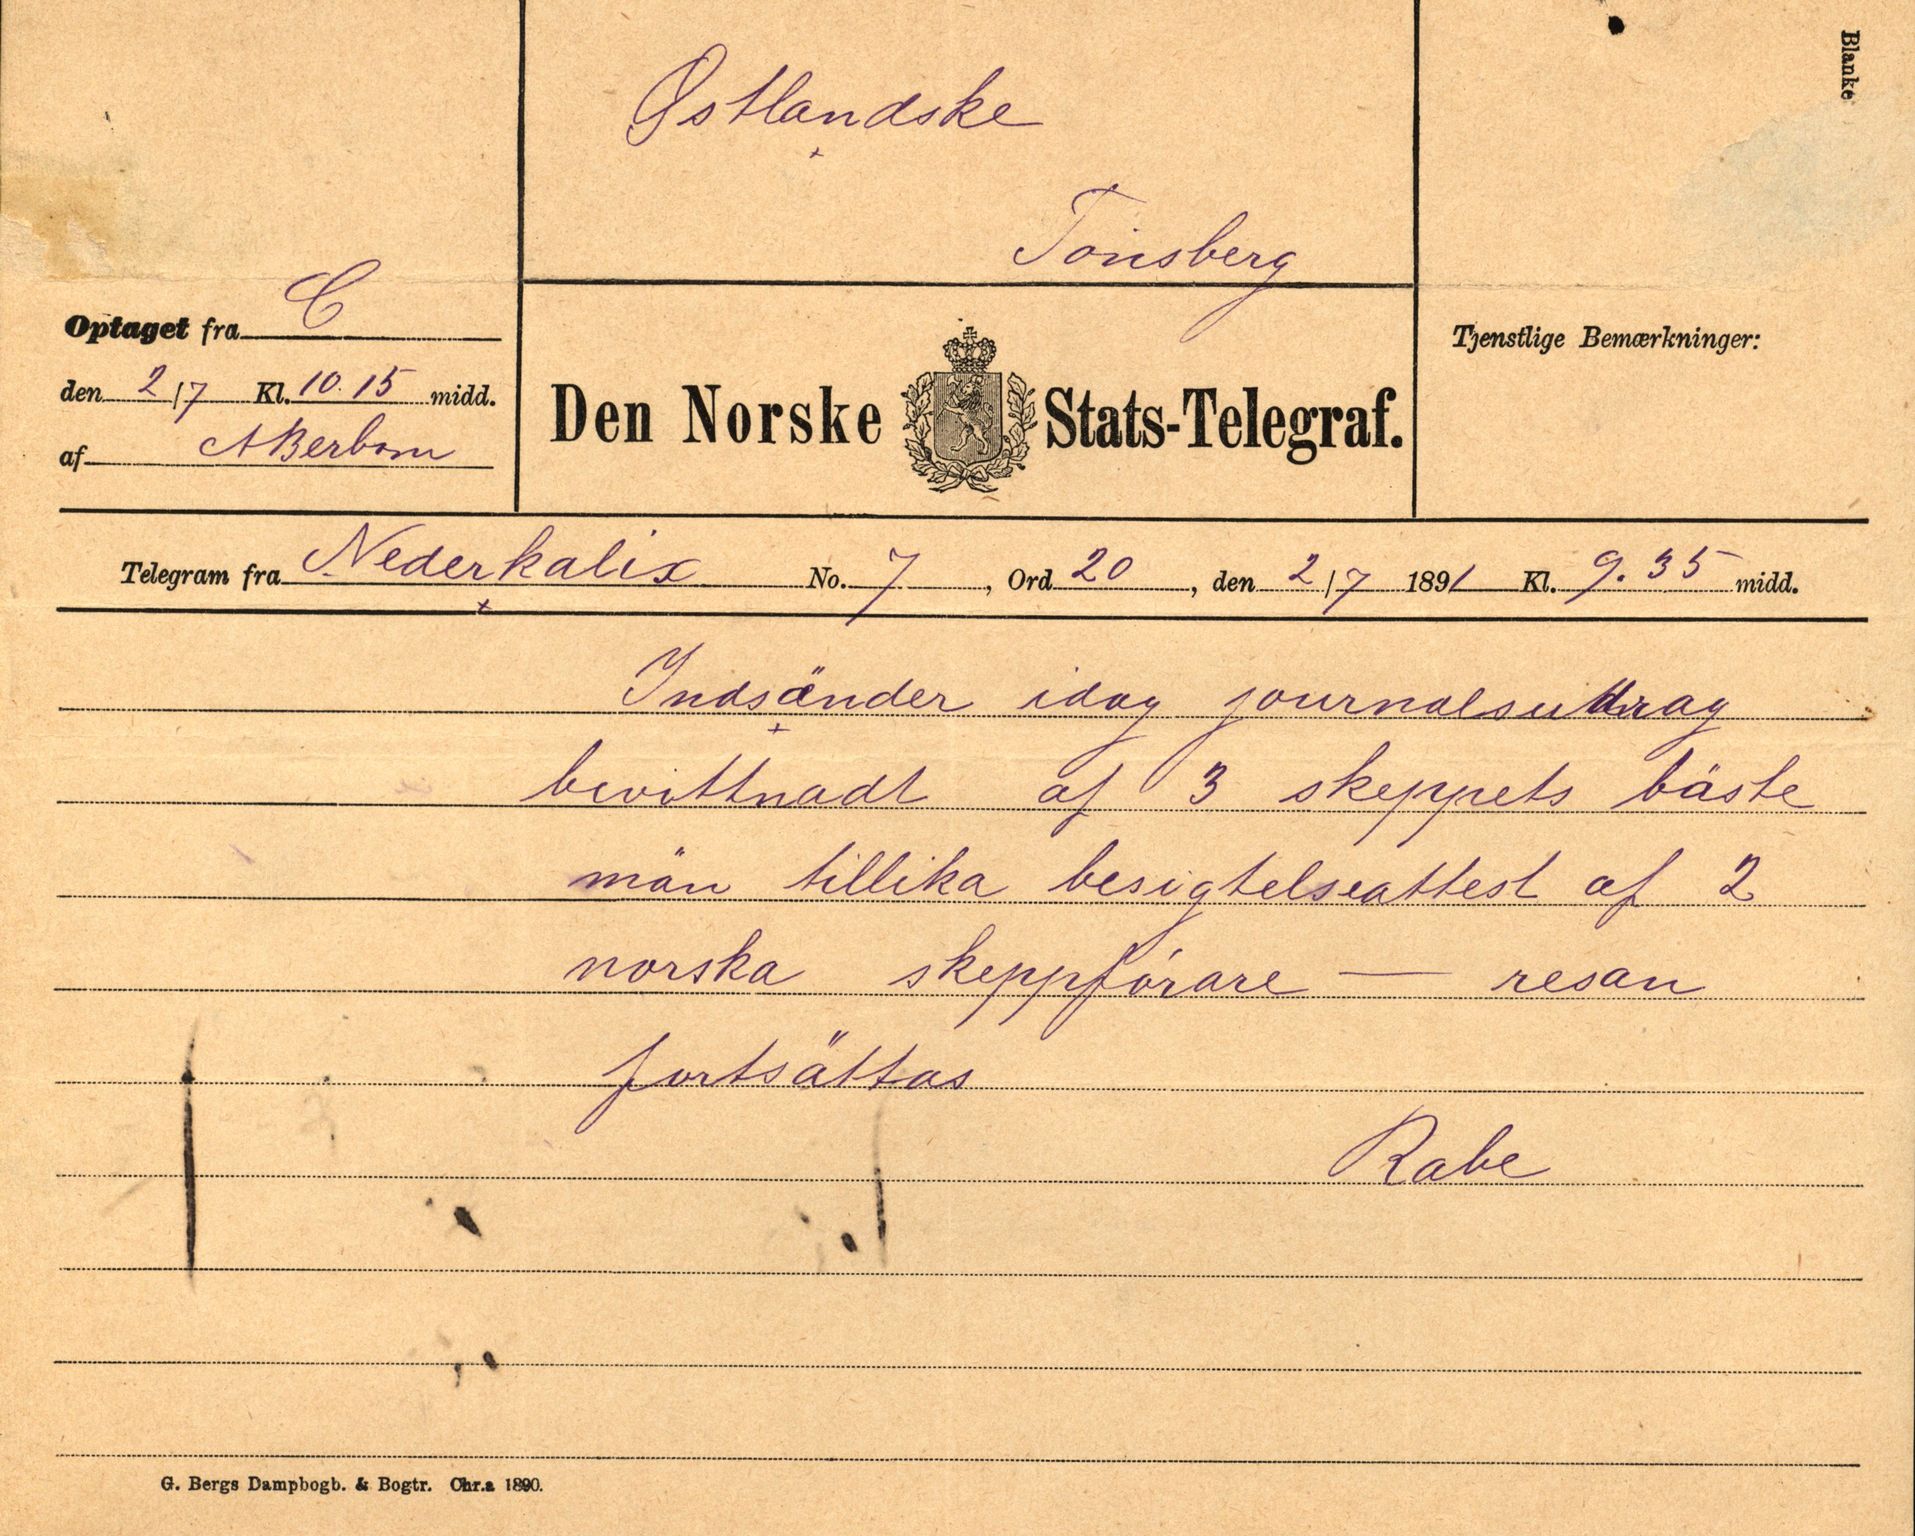 Blanke
Østlandske
Tönsberg
Optaget fra C
den 2/7 Kl. 10.15 midd.
af ABerbom
Den Norske Stats-Telegraf.
Tjenstlige Bemærkninger:
Telegram fra Nederkalix No. 7, Ord 20, den 2/7 1891 Kl. 9.35 midd.
Indsänder idag journalsutdrag
bevittnadt af 3 skeppets bäste
män tillika besigtelseattest af 2
norska skeppförare — resan
fortsättas
Rabe
G. Bergs Dampbogb. & Bogtr. Chr.a 1890.